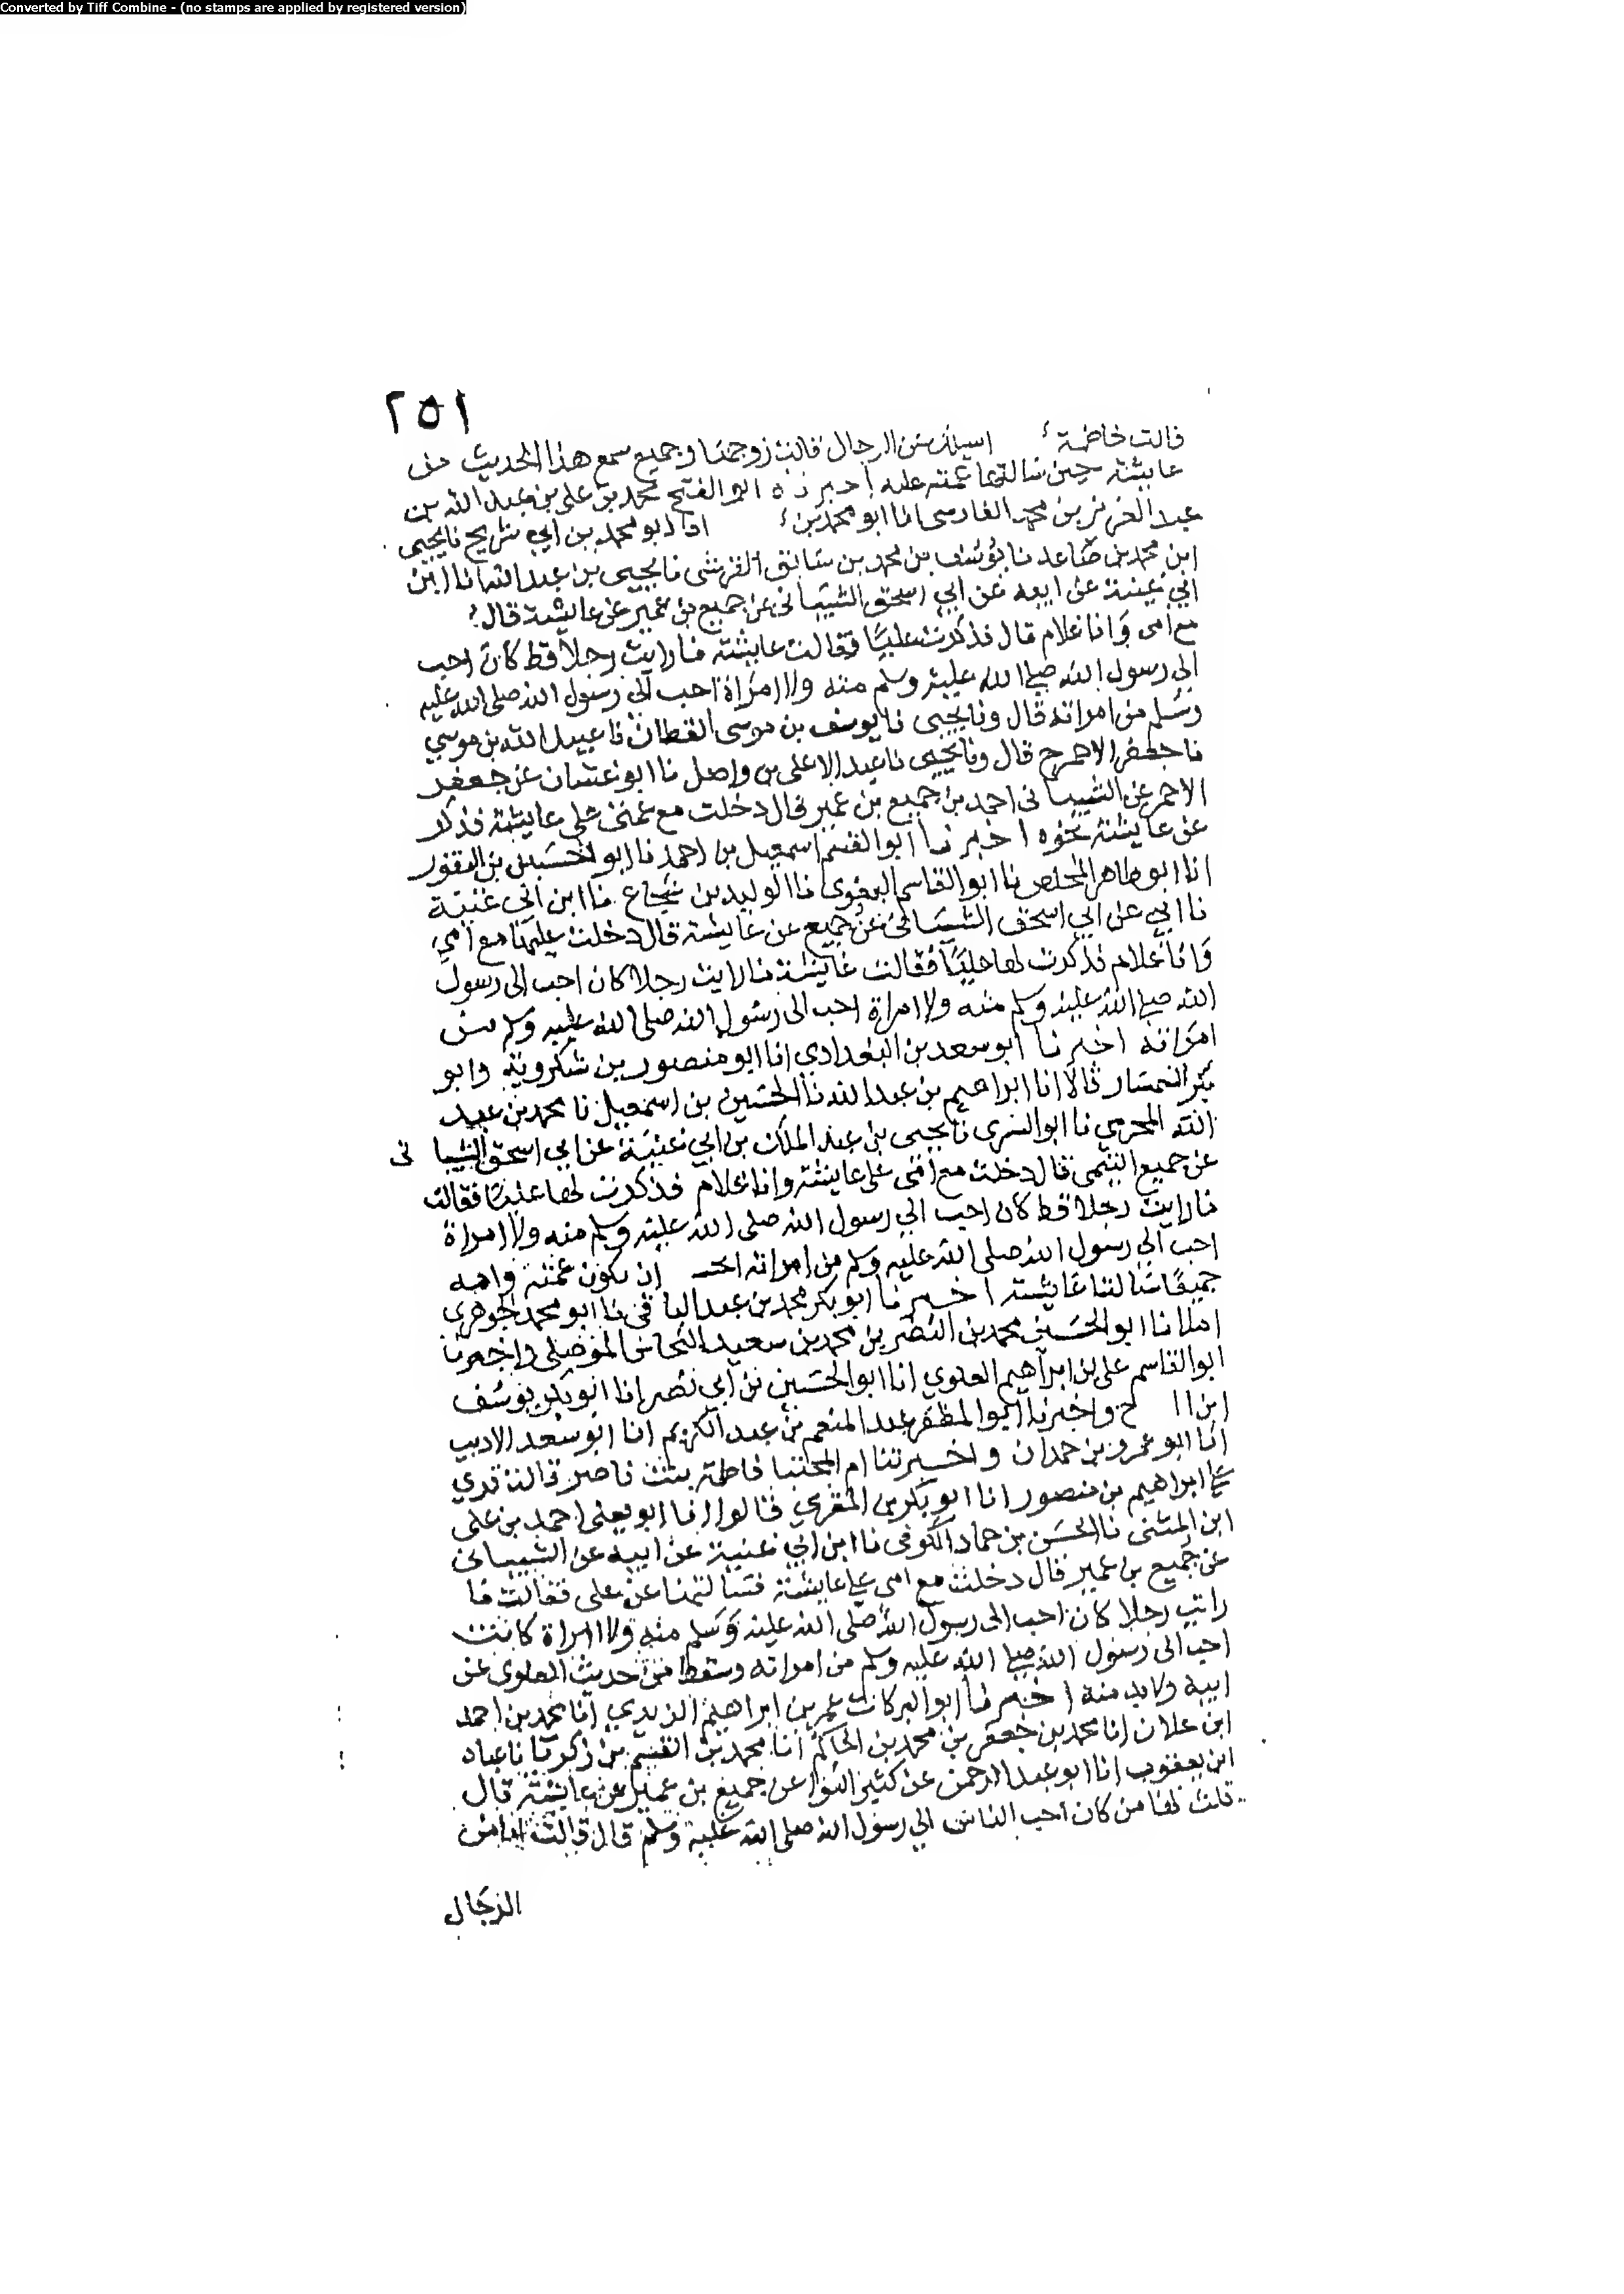 Converted by Tiff Combine - (no stamps are applied by registered version)
٢٥١
قالت فاطمة من الرجال قالت زوجها وجميع سمع هذا الحديث من
عايشة حين سالتها عمته عليه ابو الفتح محمد بن علي بن عبد الله بن
عبد العزيز بن محمد الفارسي انا ابو محمد بن انا ابو محمد بن ابي شريح نا يحيى
ابن محمد بن صاعد نا يوسف بن محمد بن سابق القرشي نا يحيى بن عبد الملك ابن
ابي غنية عن ابيه عن ابي اسحق الشيباني عن جميع بن عمير عن عايشة قال
مع امي وانا غلام قال فذكرت عليا فقالت عايشة ما رايت رجلا قط كان احب
الى رسول الله صلى الله عليه وسلم منه ولا امراة احب الى رسول الله صلى الله عليه
وسلم من امراته قال ونا يحيى نا يوسف بن موسى القطان نا عبيد الله بن موسى
نا جعفر الاحمر ح قال ونا يحيى نا عبد الاعلى بن واصل نا ابو غسان عن جعفر
الاحمر عن الشيباني احمد بن جميع بن عمير قال دخلت مع عمتي على عايشة فذكر
عن عايشة نحوه اخبرنا ابو القسم اسمعيل بن احمد نا ابو الحسين بن النقور
انا ابو طاهر المخلص نا ابو القاسم البغوي نا الوليد بن شجاع نا ابن ابي غنية
نا ابي عن ابي اسحق الشيباني عن جميع عن عايشة قال دخلت عليها مع امي
وانا غلام فذكرت لها عليا فقالت عايشة ما رايت رجلا كان احب الى رسول
الله صلى الله عليه وسلم منه ولا امراة احب الى رسول الله صلى الله عليه وسلم من
امراته اخبرنا ابو سعد بن البغدادي انا ابو منصور بن شكرويه وابو
بكر السمسار قالا انا ابراهيم بن عبد الله نا الحسين بن اسمعيل نا محمد بن عبيد
الله المخرمي نا ابو السري نا يحيى بن عبد الملك بن ابي غنية عن ابي اسحق الشيباني
عن جميع التيمي قال دخلت مع امي على عايشة وانا غلام فذكرت لها عليا فقالت
ما رايت رجلا قط كان احب الى رسول الله صلى الله عليه وسلم منه ولا امراة
احب الى رسول الله صلى الله عليه وسلم من امراته ان يكون عمته وامه
جميعا سالتا عايشة اخبرنا ابو بكر محمد بن عبد الباقي نا ابو محمد الجوهري
املا نا ابو الحسين محمد بن النضر بن محمد بن سعيد النحاس الموصلي واخبرنا
ابو القاسم علي بن ابراهيم العلوي انا ابو الحسين بن ابي نصر انا ابو بكر يوسف
ابن ح واخبرنا ابو المظفر عبد المنعم بن عبد الكريم انا ابو سعد الاديب
انا ابو عمرو بن حمدان واخبرتنا ام المجتبا فاطمة بنت ناصر قالت قري
على ابراهيم بن منصور انا ابو بكر بن المقري قالوا انا ابو يعلى احمد بن علي
ابن المثنى نا الحسن بن حماد الكوفي نا ابن ابي غنية عن ابيه عن الشيباني
عن جميع بن عمير قال دخلت مع امي على عايشة فسالتها عن علي فقالت ما
رايت رجلا كان احب الى رسول الله صلى الله عليه وسلم منه ولا امراة كانت
احب الى رسول الله صلى الله عليه وسلم من امراته وسقط من حديث العلوي عن
ابيه ولابد منه اخبرنا ابو البركات عمر بن ابراهيم الزيدي انا محمد بن احمد
ابن علان انا محمد بن جعفر بن محمد بن الحاكم انا محمد بن القسم بن زكريا نا عباد
ابن يعقوب انا ابو عبد الرحمن عن كثير النوا عن جميع بن عمير عن عايشة قال
قلت لها من كان احب الناس الى رسول الله صلى الله عليه وسلم قال قالت اما من
الرجال